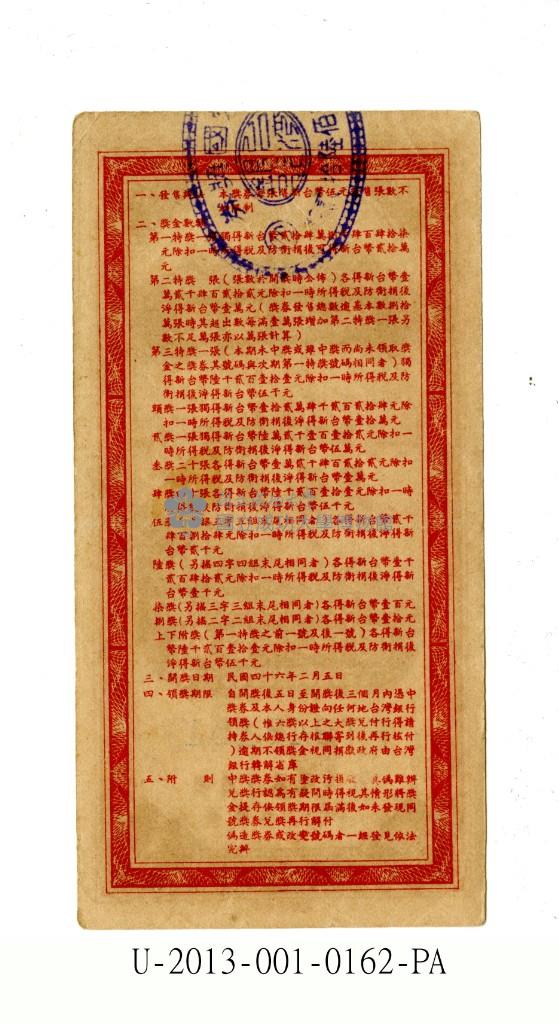 一、發售 本獎券 張售新台幣伍元 售張數不
制
二、獎金數
第一特獎一 獨得新台幣貳拾 肆百肆拾柒
元除扣一時所得稅及防衛捐後 得新台幣貳拾萬
元
第二特獎 張(張數於開獎時公佈)各得新台幣壹
萬貳千肆百貳拾貳元除扣一時所得稅及防衛捐後
淨得新台幣壹萬元(獎券發售總數逾基本數捌拾
萬張時其超出數每滿壹萬張增加第二特獎一張另
數不足萬張亦以萬張計算)
第三特獎一張(本期未中獎或雖中獎而尚未領取獎
金之獎券其號碼與次期第一特獎號碼相同者)獨
得新台幣陸千貳百壹拾壹元除扣一時所得稅及防
衛捐後淨得新台幣伍千元
頭獎一張獨得新台幣壹拾貳萬肆千貳百貳拾肆元除
扣一時所得稅及防衛捐後淨得新台幣壹拾萬元
貳獎一張獨得新台幣陸萬貳千壹百壹拾貳元除扣一
時所得稅及防衛捐後淨得新台幣伍萬元
叁獎二十張各得新台幣壹萬貳千肆百貳拾貳元除扣
一時所得稅及防衛捐後淨得新台幣壹萬元
肆獎 十張各得新台幣陸千貳百壹拾壹元除扣一時
所得稅及防衛捐後淨得新台幣伍千元
伍獎(另搖 五組末尾相同者)各得新台幣貳千
肆百捌拾肆元除扣一時所得稅及防衛捐後淨得新
台幣貳千元
陸獎(另搖四字四組末尾相同者)各得新台幣壹千
貳百肆拾貳元除扣一時所得稅及防衛捐後淨得新
台幣壹千元
柒獎(另搖三字三組末尾相同者)各得新台幣壹百元
捌獎(另搖二字二組末尾相同者)各得新台幣貳拾元
上下附獎(第一特獎之前一號及後一號)各得新台
幣陸千貳百壹拾壹元除扣一時所得稅及防衛捐後
淨得新台幣伍千元
三、開獎日期 民國四十六年二月五日
四、領獎期限 自開獎後五日至開獎後三個月內憑中
獎券及本人身份證向任何地台灣銀行
領獎(惟六獎以上之大獎兌付行得請
持券人俟總行存根聯寄到後再行核付
)逾期不領獎金視同捐獻政府由台灣
銀行轉解省庫
五、附則 中獎獎券如有塗改污損 真偽難辨
兌獎行認為有疑問時得視其情形將獎
金提存俟領獎期限屆滿後如未發現同
號獎券兌獎再行解付
偽造獎券或改變號碼者一經發見依法
究辦
U-2013-001-0162-PA